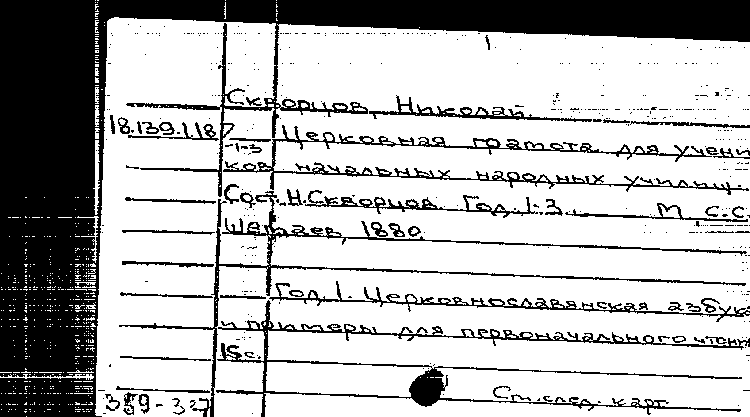 1
Скворцов, Николай.
18.139.1.187 Церковная грамота для учени
-1-3
ков начальных народных училищ.
Сост. Н. Скворцов. Год 1-3. М., С.С.
1880
Год 1. Церковнославянская азбука
и примеры для первоначального чтени
15 с.
См. след. карт.